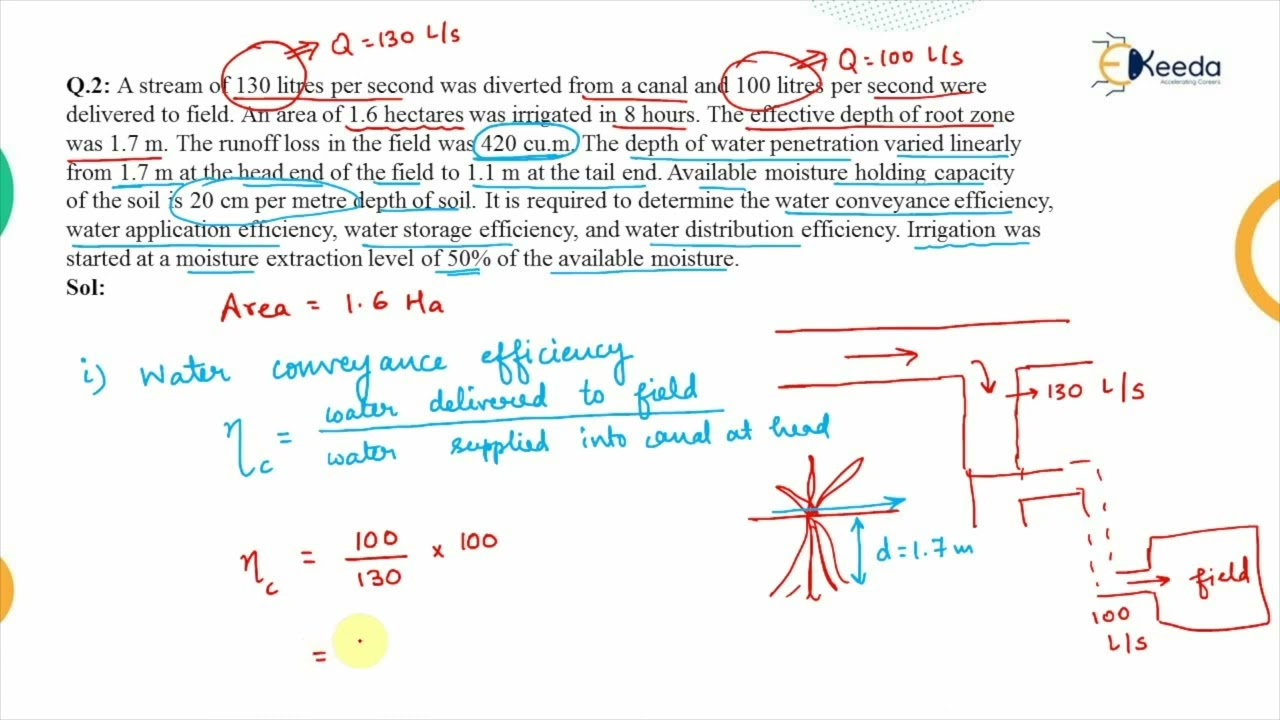 Q = 130 L/s
Q = 100 L/s
EKeeda
Accelerating Careers
Q.2: A stream of 130 litres per second was diverted from a canal and 100 litres per second were
delivered to field. An area of 1.6 hectares was irrigated in 8 hours. The effective depth of root zone
was 1.7 m. The runoff loss in the field was 420 cu.m. The depth of water penetration varied linearly
from 1.7 m at the head end of the field to 1.1 m at the tail end. Available moisture holding capacity
of the soil is 20 cm per metre depth of soil. It is required to determine the water conveyance efficiency,
water application efficiency, water storage efficiency, and water distribution efficiency. Irrigation was
started at a moisture extraction level of 50% of the available moisture.
Sol:
Area = 1.6 Ha
i) Water conveyance efficiency
ηc = water delivered to field
water supplied into canal at head
130 L/s
ηc = 100 × 100
130
d = 1.7 m
field
100
L/s
=